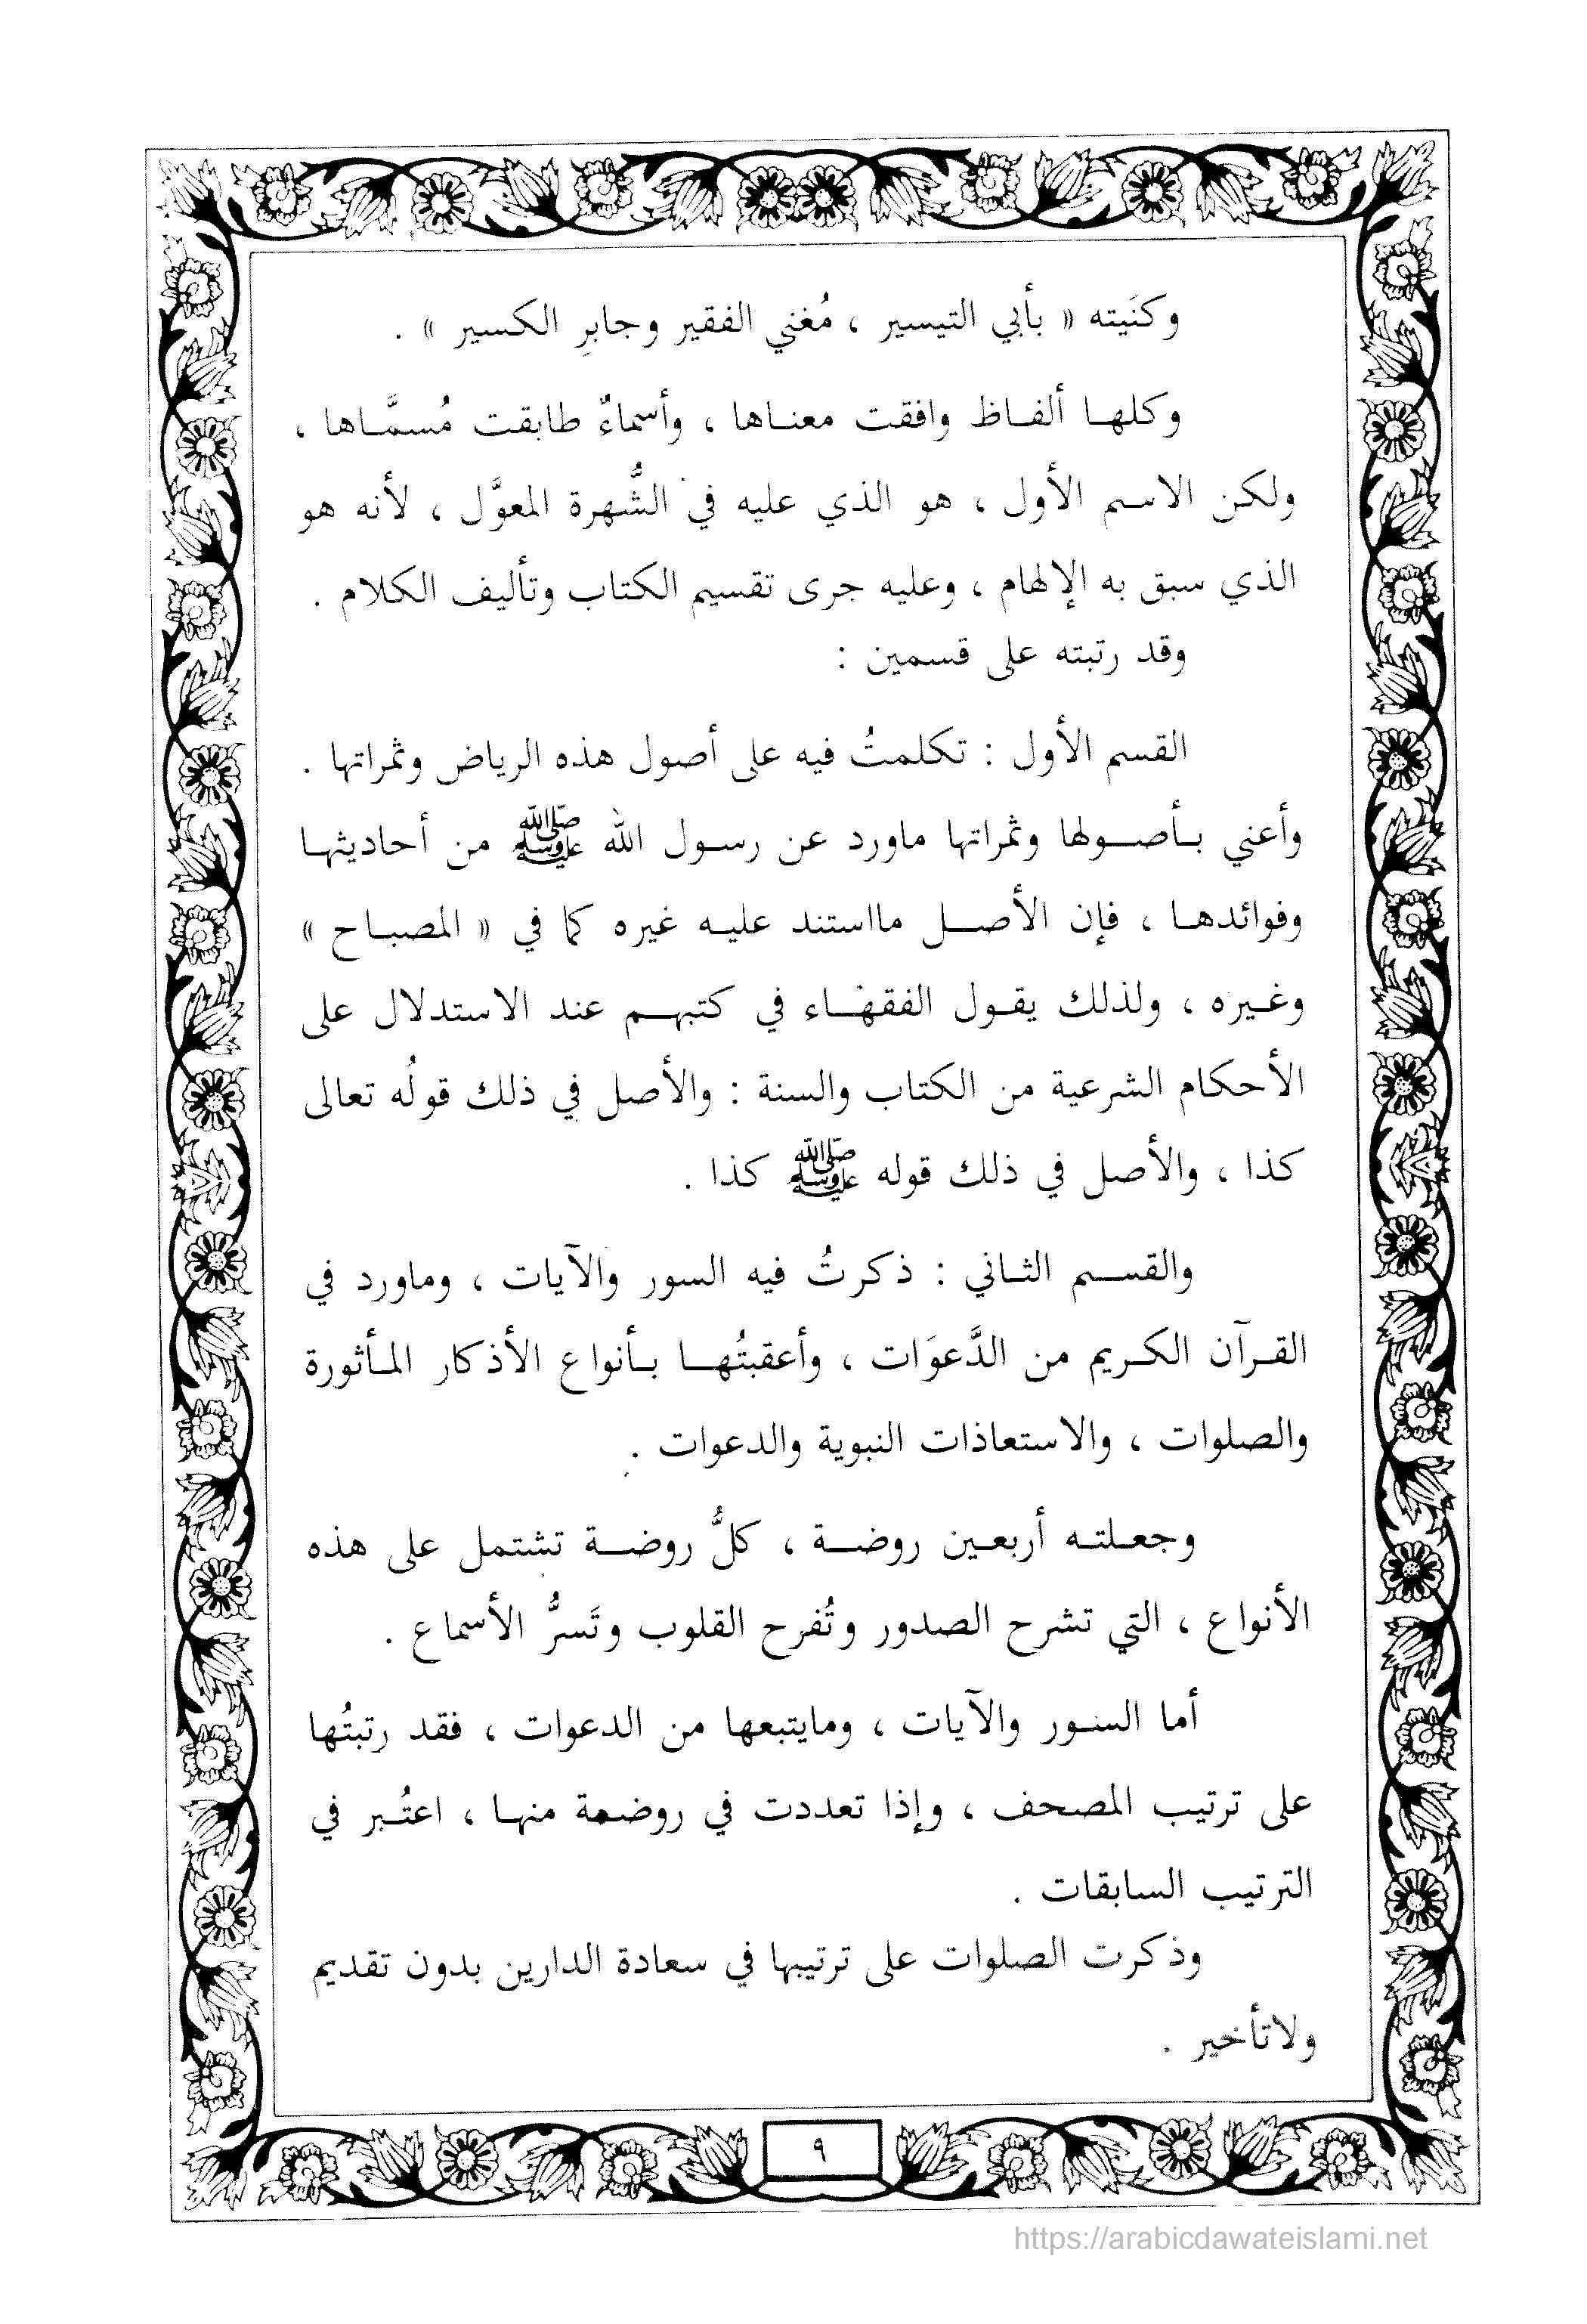 وكنَيته « بأبي التيسير ، مُغني الفقير وجابرِ الكسير » .
وكلهـا ألفـاظ وافقت معنـاها ، وأسماءٌ طابقت مُسمَّـاها ،
ولكن الاسـم الأول ، هو الذي عليه في الشُّهرة المعوَّل ، لأنه هو
الذي سبق به الإلهام ، وعليه جرى تقسيم الكتاب وتأليف الكلام .
وقد رتبته على قسمين :
القسم الأول : تكلمتُ فيه على أصول هذه الرياض وثمراتها .
وأعني بـأصـولها وثمراتها ماورد عن رسـول الله ﷺ من أحاديثهـا
وفوائدهـا ، فإن الأصـل مااستند عليـه غيره كما في « المصبـاح »
وغـيره ، ولذلك يقـول الفقهـاء في كتبهـم عند الاستدلال على
الأحكام الشرعية من الكتاب والسنة : والأصل في ذلك قولُه تعالى
كذا ، والأصل في ذلك قوله ﷺ كذا .
والقسـم الثـاني : ذكرتُ فيه السور والآيات ، وماورد في
القـرآن الكـريم من الدَّعوَات ، وأعقبتُهـا بـأنواع الأذكار المـأثورة
والصلوات ، والاستعاذات النبوية والدعوات .
وجعـلتـه أربعـين روضـة ، كلُّ روضـة تشتمل على هذه
الأنواع ، التي تشرح الصدور وتُفرح القلوب وتَسرُّ الأسماع .
أما السـور والآيات ، ومايتبعها من الدعوات ، فقد رتبتُها
على ترتيب المصحف ، وإذا تعددت في روضـة منهـا ، اعتُـبر في
الترتيب السابقات .
وذكرت الصلوات على ترتيبها في سعادة الدارين بدون تقديم
ولاتأخير .
٩
https://arabicdawateislami.net